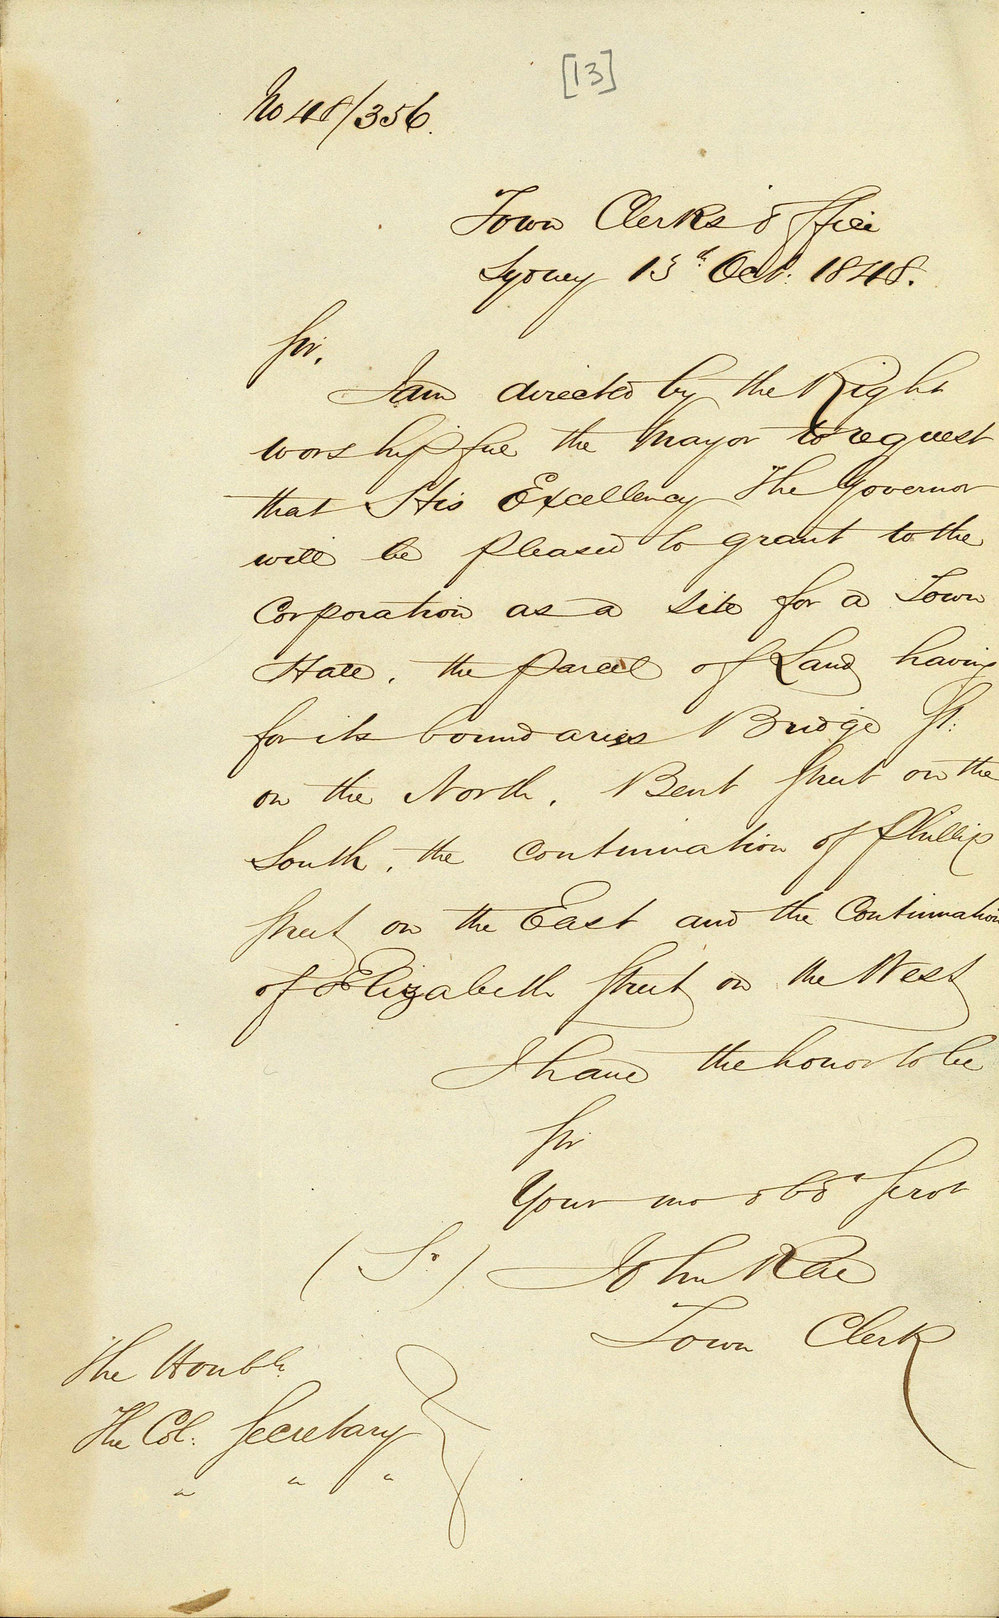 [13]
No 48/356.
Town Clerks Office
Sydney 13th Oct. 1848.
Sir,
I am directed by the Right
worshipful the Mayor to request
that His Excellency The Governor
will be pleased to grant to the
Corporation as a site for a Town
Hall, the parcel of Land having
for its boundaries Bridge St.
on the North, Bent Street on the
South, the continuation of Phillip
Street on the East and the Continuation
of Elizabeth Street on the West
I have the honor to be
Sir
Your mo obdt Servt
(Sd) John Rae
Town Clerk
The Honble
The Col. Secretary
" " "